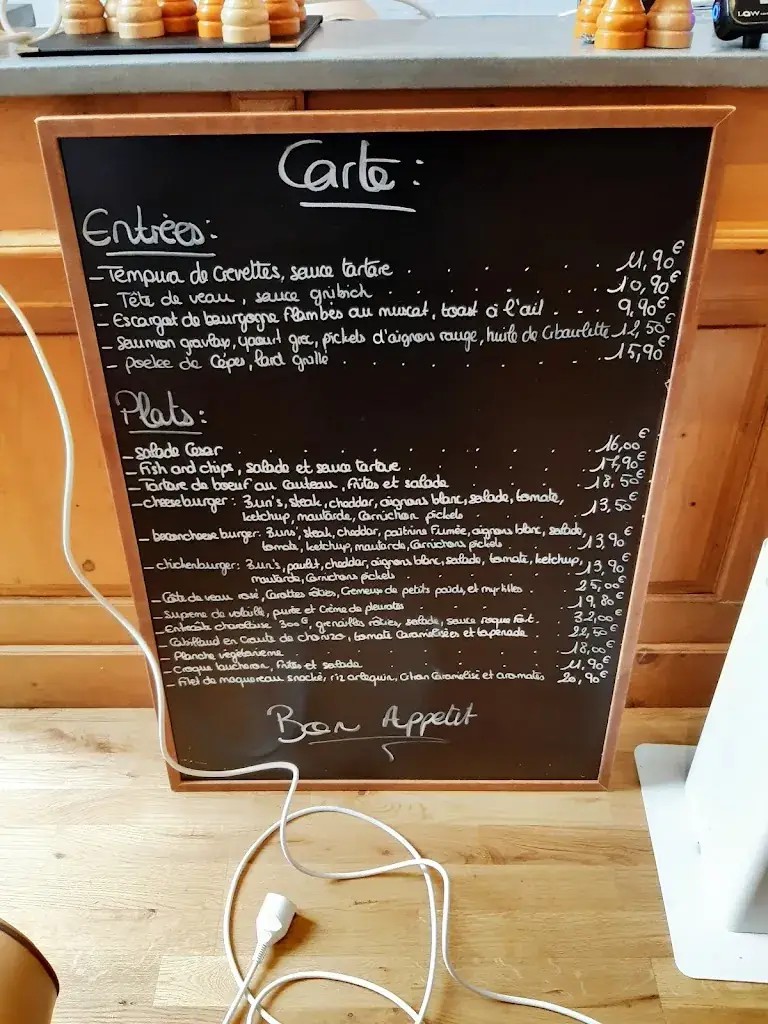 Carte :
Entrées :
- Tempura de Crevettes, sauce tartare . . . . . . 11,90€
- Tête de veau, sauce gribich . . . . . . 10,90€
- Escargot de bourgogne flambés au muscat, toast à l'ail . . . 9,90€
- Saumon gravlax, yaourt grec, pickels d'oignons rouge, huile de Ciboulette 12,50€
- poelée de Cèpes, lard grillé . . . . . . 15,90€
Plats :
- Salade Cesar . . . . . . 16,00€
- Fish and chips, salade et sauce tartare . . . . . . 17,90€
- Tartare de boeuf au couteau, frites et salade . . . . . 18,50€
- cheeseburger : Bun's, steak, cheddar, oignons blanc, salade, tomate,
ketchup, moutarde, Cornichon pickels . . . . 13,50€
- baconcheeseburger : Buns', steak, cheddar, poitrine Fumée, oignons blanc, salade,
tomate, ketchup, moutarde, Cornichons pickels . . . 13,90€
- chickenburger : Bun's, poulet, cheddar, oignons blanc, salade, tomate, ketchup,
moutarde, Cornichons pickels . . . . 13,90€
- Côte de veau rosé, Carottes rôties, Cremeux de petits poids, et myrtilles . . . 25,00€
- Supreme de volaille, purée et Crème de . . . . 19,80€
- Entrecôte charolaise 300G, grenailles rôties, salade, sauce roquefort . . 32,00€
- Cabillaud en Croute de chorizo, tomate Caramelisées et tapenade . . 22,50€
- Planche végétarienne . . . . . . 18,00€
- Croque bucheron, frites et salade . . . . . . 11,90€
- Filet de maquereau snacké, riz arlequin, Citron Caramélisé et aromates . . 20,90€
Bon Appetit